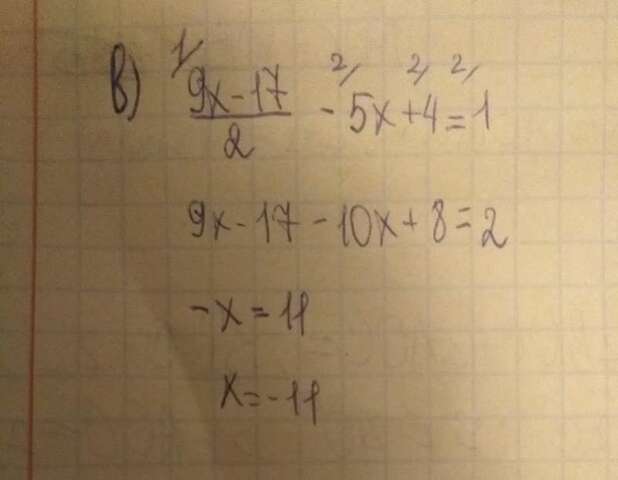 в) 1/ 2/ 2/ 2/
9x-17/2 - 5x+4=1
9x-17-10x+8=2
-x=11
x=-11